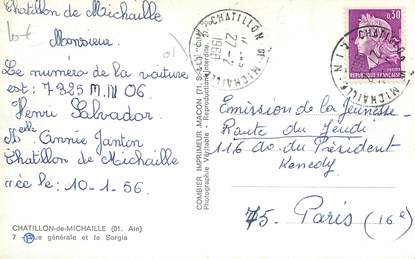 Chatillon de Michaille
Monsieur.
Le numéro de la voiture
est: 7825 MM 06.
Henri Salvador.
Melle Annie Janton
Chatillon de Michaille
née le: 10-1-56.
CHATILLON-de-MICHAILLE (01. Ain)
7 - Vue générale et la Sorgia
COMBIER IMPRIMEUR MACON
Photographie Véritable - Reproduction Interdite
CHATILLON DE MICHAILLE
27-2
0,30
REPUBLIQUE FRANCAISE
CHATILLON DE MICHAILLE
AIN
Emission de la Jeunesse
Route du Jeudi
116 Av. du Président
Kenedy
75. Paris (16e)